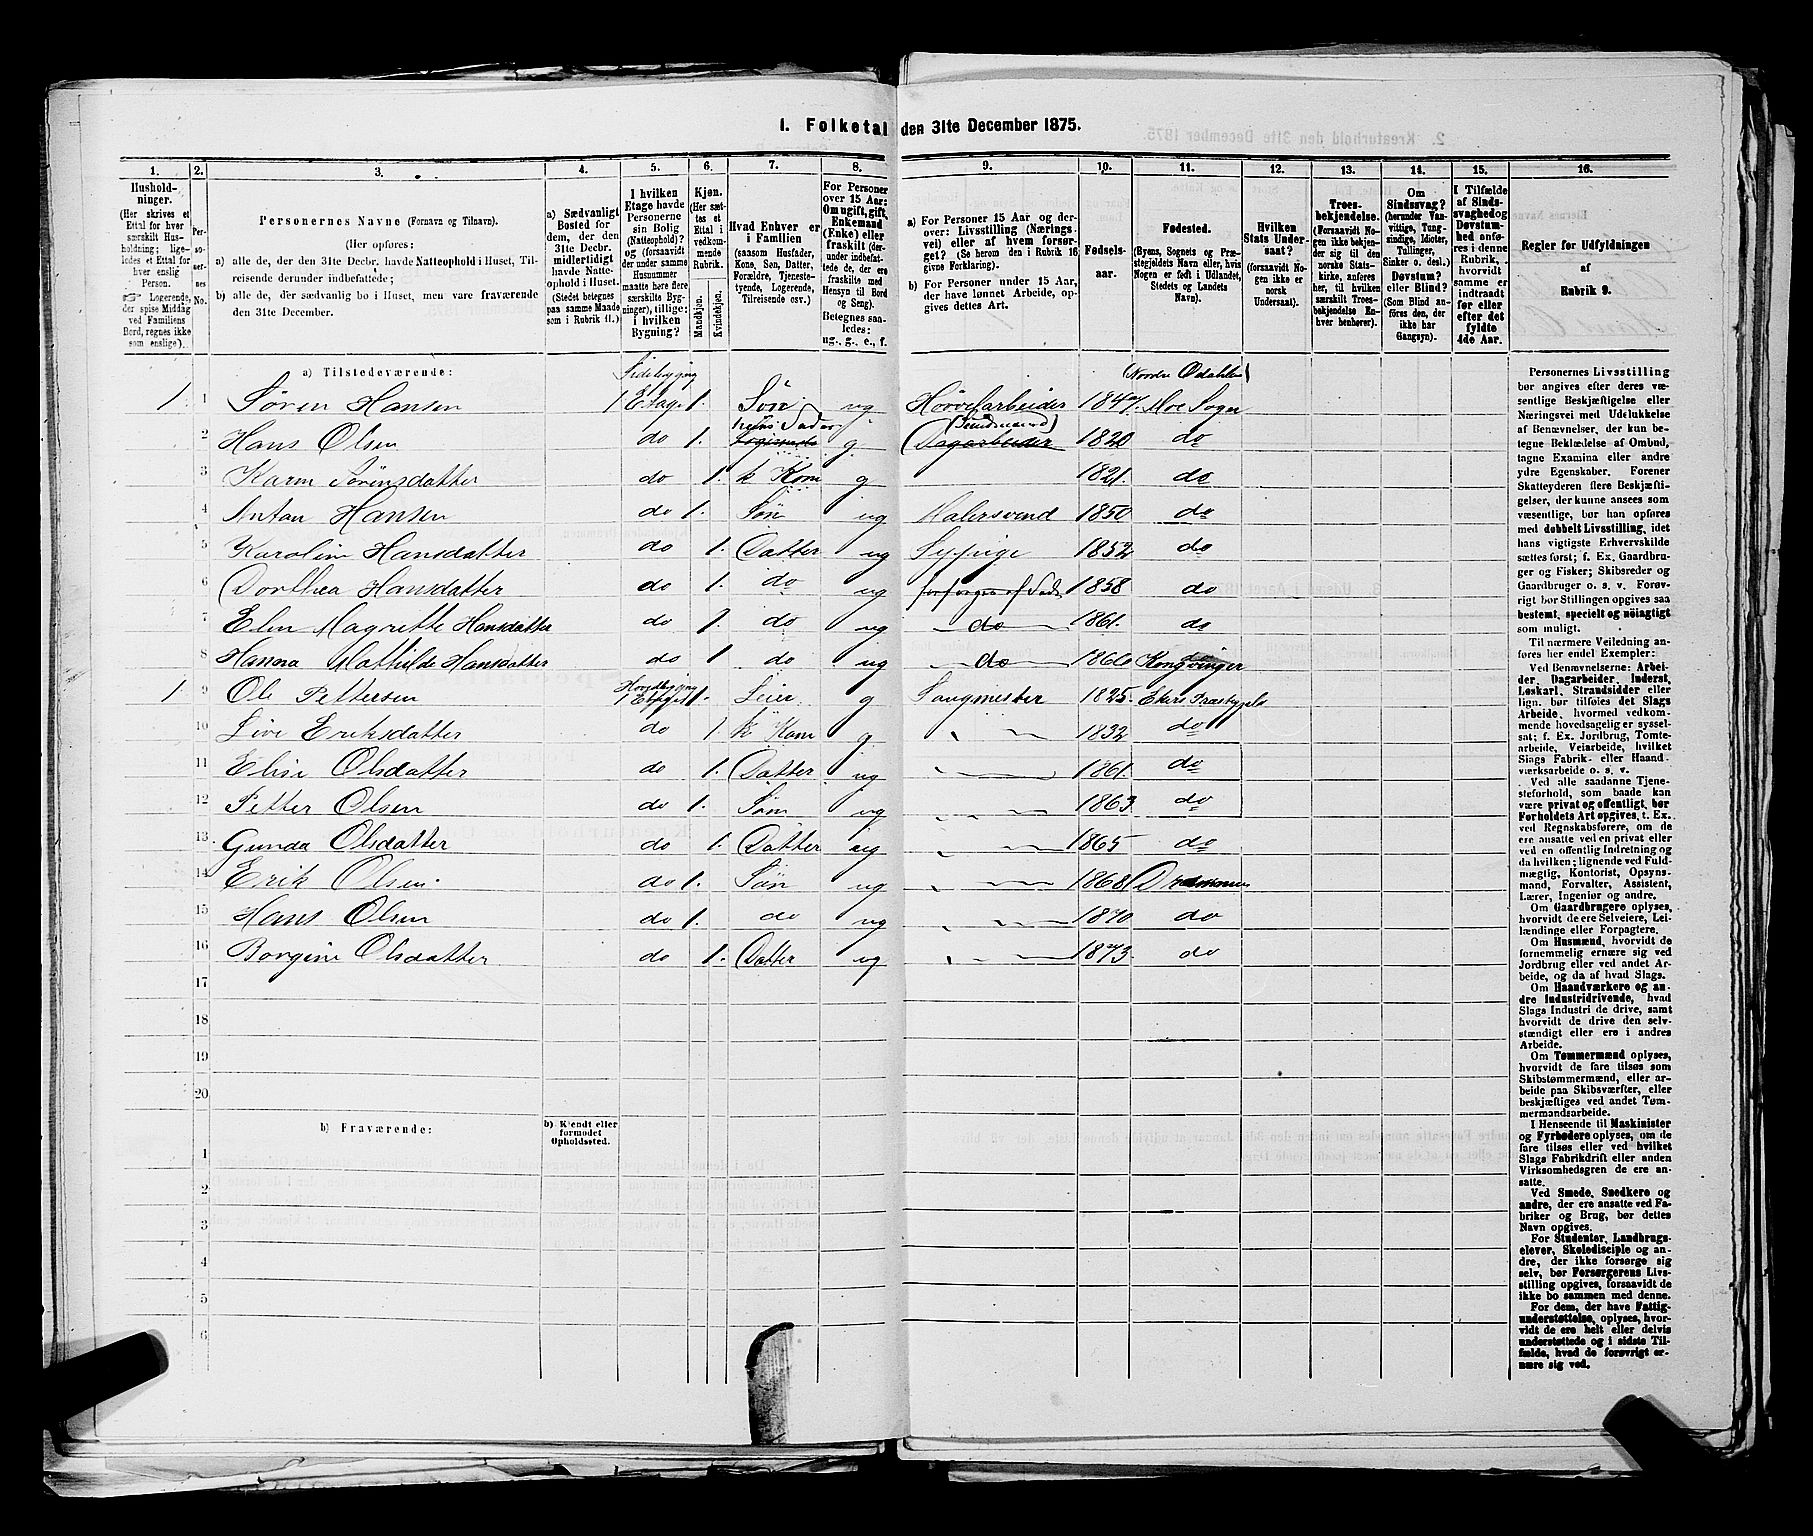 1. Folketal den 31te December 1875.
1. 2. 3. 4. 5. 6. 7. 8. 9. 10. 11. 12. 13. 14. 15. 16.
Hushold-
ninger.
(Her skrives et
Ettal for hver
særskilt Hus-
holdning; lige-
ledes et Ettal
for hver enslig
Person.
☞ Logerende,
der spise Middag
ved Familiens
Bord, regnes ikke
som enslige).
Per-
so-
ner-
nes
No.
Personernes Navne (Fornavn og Tilnavn).
(Her opføres:
a) alle de, der den 31te Decbr. havde Natteophold i Huset, Til-
reisende derunder indbefattede;
b) alle de, der sædvanlig bo i Huset, men vare fraværende
den 31te December.
a) Sædvanligt
Bosted for
dem, der den
31te Decbr.
midlertidigt
havde Natte-
ophold i Huset.
(Stedet betegnes
paa samme Maade
som i Rubrik 11.)
I hvilken
Etage havde
Personerne
sin Bolig
(Natteophold)?
og (forsaavidt
der under samme
Husnummer
maatte høre flere
særskilte Byg-
ninger), tillige:
i hvilken
Bygning?
Kjøn.
(Her sæt-
tes et
Ettal i
vedkom-
mende
Rubrik.
Mandkjøn.
Kvindekjøn.
Hvad Enhver er
i Familien
(saasom Husfader,
Kone, Søn, Datter,
Forældre, Tjeneste-
tyende, Logerende,
Tilreisende osv.)
For Personer
over 15 Aar:
Om ugift, gift,
Enkemand
(Enke) eller
fraskilt (der-
under indbefat-
tede de, der ere
fraskilte med
Hensyn til Bord
og Seng).
Betegnes saa-
ledes:
ug., g., e., f.
a) For Personer 15 Aar og der-
over: Livsstilling (Nærings-
vei) eller af hvem forsør-
get? (Se herom den i Rubrik 16
givne Forklaring).
b) For Personer under 15 Aar,
der have lønnet Arbeide, op-
gives dettes Art.
Fødsels-
aar.
Fødested.
(Byens, Sognets og Præ-
stegjeldets Navn eller, hvis
Nogen er født i Udlandet,
Stedets og Landets
Navn).
Hvilken
Stats Under-
saat?
(forsaavidt No-
gen ikke er
norsk
Undersaat).
Troes-
bekjendelse.
(Forsaavidt No-
gen ikke bekjen-
der sig til den
norske Stats-
kirke, anføres
her, til hvilken
særskilt Troes-
bekjendelse En-
hver henhører).
Om
Sindssvag?
(herunder Van-
vittige, Tung-
sindige, Idioter,
Tullinger,
Sinker o. desl.).
Døvstum?
eller Blind?
(Som Blind an-
føres den, der
ikke har
Gangsyn).
I Tilfælde
af Sinds-
svaghed og
Døvstum-
hed anfø-
res i denne
Rubrik,
hvorvidt
samme er
indtraadt
før eller
efter det
fyldte
4de Aar.
Regler for Udfyldningen
af
Rubrik 9.
a) Tilstedeværende:
Sidebygning (Nordre Odahlen)
1. 1 Søren Hansen 1 Etage 1. Søn ug Høvlearbeider 1847. Moe Sogn
hans Fader
2 Hans Olsen do 1. g Dagarbeider 1820 do
3 Karen Sørensdatter do 1. k Kone g 1821. do
4 Anton Hansen do 1. Søn ug Malersvend 1850 do
5 Karoline Hansdatter do 1. Datter ug Sypige 1852 do
6 Dorthea Hansdatter do 1. do ug forsørges af Fader 1858 do
7 Elen Magrette Hansdatter do 1. do ug do 1861. do
8 Hanna Mathilde Hansdatter do 1 do ug do 1866 Kongvinger
Hovedbygning
1 9 Ole Pettersen 1 Etage 1. Leier g Saugmester 1825. Ekers Præstegjeld
10 Live Eriksdatter do 1 k Kone g 1832 do
11 Elise Olsdatter do 1. Datter ug 1861. do
12 Petter Olsen do 1. Søn ug 1863. do
13 Gunda Olsdatter do 1. Datter ug 1865 do
14 Erik Olsen. do 1. Søn ug 1868 Drammen
15 Hans Olsen do 1. do ug 1870 do
16 Borgine Olsdatter do 1. Datter ug 1873. do
17
18
19
20
b) Fraværende: b) Kjendt eller
formodet
Opholdssted.
1
2
3
4
5
6
Personernes Livsstilling
bør angives efter deres væ-
sentlige Beskjæftigelse eller
Næringsvei med Udelukkelse
af Benævnelser, der kun be-
tegne Beklædelse af Ombud,
tagne Examina eller andre
ydre Egenskaber. Forener
Skatteyderen flere Beskjæfti-
gelser, der kunne ansees som
væsentlige, bør han opføres
med dobbelt Livsstilling, idet
hans vigtigste Erhvervskilde
sættes først; f. Ex. Gaardbru-
ger og Fisker; Skibsreder og
Gaardbruger o. s. v. Forøv-
rigt bør Stillingen opgives saa
bestemt, specielt og nøiagtigt
som muligt.
Til nærmere Veiledning an-
føres her endel Exempler:
Ved Benævnelserne: Arbei-
der, Dagarbeider, Inderst,
Løskarl, Strandsidder eller
lign. bør tilføies det Slags
Arbeide, hvormed vedkom-
mende hovedsagelig er syssel-
sat; f. Ex. Jordbrug, Tomte-
arbeide, Veiarbeide, hvilket
Slags Fabrik- eller Haand-
værksarbeide o. s. v.
Ved alle saadanne Tjene-
steforhold, som baade kan
være privat og offentligt, bør
Forholdets Art opgives, t. Ex.
ved Regnskabsførere, om de
ere ansatte ved en privat eller
ved en offentlig Indretning og
da hvilken; lignende ved Fuld-
mægtig, Kontorist, Opsyns-
mand, Forvalter, Assistent,
Lærer, Ingeniør og andre.
Om Gaardbrugere oplyses,
hvorvidt de ere Selveiere, Lei-
lændinge eller Forpagtere.
Om Husmænd, hvorvidt de
fornemmelig ernære sig ved
Jordbrug eller ved andet Ar-
beide, og da af hvad Slags.
Om Haandværkere og an-
dre Industridrivende, hvad
Slags Industri de drive, samt
hvorvidt de drive den selv-
stændigt eller ere i andres
Arbeide.
Om Tømmermænd oplyses,
hvorvidt de fare tilsøs som
Skibstømmermænd, eller ar-
beide paa Skibsværfter, eller
beskjæftiges ved andet Tøm-
mermandsarbeide.
I Henseende til Maskinister
og Fyrbødere oplyses, om de
fare tilsøs eller ved hvilket
Slags Fabrikdrift eller anden
Virksomhedsgren de ere an-
satte.
Ved Smede, Snedkere og
andre, der ere ansatte ved Fa-
briker og Brug, bør dettes
Navn opgives.
For Studenter, Landbrugs-
elever, Skoledisciple og an-
dre, der ikke forsørge sig
selv, bør Forsørgerens Livs-
stilling opgives, forsaavidt de
ikke bo sammen med denne.
For dem, der have Fattig-
understøttelse, oplyses, hvor-
vidt de ere helt eller delvis
understøttede og i sidste Til-
fælde, hvad de forøvrigt er-
nære sig ved.